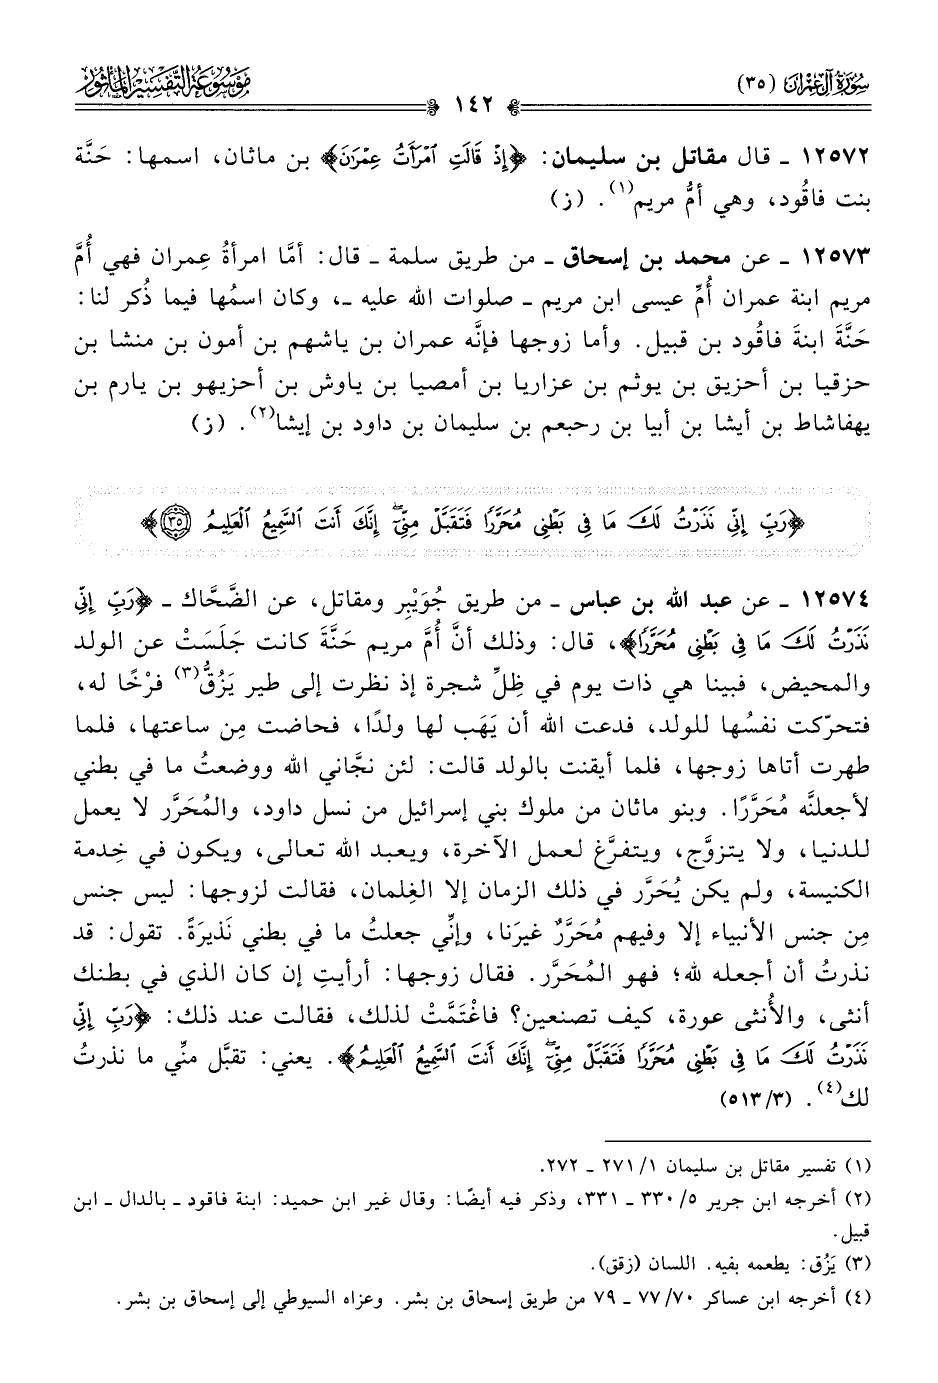 سُورَةُ آلِ عِمْرَان (٣٥)
١٤٢
مَوْسُوعَة التَّفْسِير المَأْثُور
١٢٥٧٢ ـ قال مقاتل بن سليمان: ﴿إِذْ قَالَتِ ٱمْرَأَتُ عِمْرَٰنَ﴾ بن ماثان، اسمها: حَنَّة
بنت فاقُود، وهي أمُّ مريم(١). (ز)
١٢٥٧٣ ـ عن محمد بن إسحاق ـ من طريق سلمة ـ قال: أمَّا امرأةُ عِمران فهي أُمَّ
مريم ابنة عمران أُمِّ عيسى ابن مريم ـ صلوات الله عليه ـ، وكان اسمُها فيما ذُكر لنا:
حَنَّةَ ابنةَ فاقُود بن قبيل. وأما زوجها فإنَّه عمران بن ياشهم بن أمون بن منشا بن
حزقيا بن أحزيق بن يوثم بن عزاريا بن أمصيا بن ياوش بن أحزيهو بن يارم بن
يهفاشاط بن أيشا بن أبيا بن رحبعم بن سليمان بن داود بن إيشا(٢). (ز)
﴿رَبِّ إِنِّى نَذَرْتُ لَكَ مَا فِى بَطْنِى مُحَرَّرًا فَتَقَبَّلْ مِنِّىٓ ۖ إِنَّكَ أَنتَ ٱلسَّمِيعُ ٱلْعَلِيمُ ٣٥﴾
١٢٥٧٤ ـ عن عبد الله بن عباس ـ من طريق جُوَيْبِر ومقاتل، عن الضَّحَّاك ـ ﴿رَبِّ إِنِّى
نَذَرْتُ لَكَ مَا فِى بَطْنِى مُحَرَّرًا﴾، قال: وذلك أنَّ أُمَّ مريم حَنَّةَ كانت جَلَسَتْ عن الولد
والمحيض، فبينا هي ذات يوم في ظِلِّ شجرة إذ نظرت إلى طير يَزُقُّ(٣) فرْخًا له،
فتحرّكت نفسُها للولد، فدعت الله أن يَهَب لها ولدًا، فحاضت مِن ساعتها، فلما
طهرت أتاها زوجها، فلما أيقنت بالولد قالت: لئن نجَّاني الله ووضعتُ ما في بطني
لأجعلنَّه مُحَرَّرًا. وبنو ماثان من ملوك بني إسرائيل من نسل داود، والمُحَرَّر لا يعمل
للدنيا، ولا يتزوَّج، ويتفرَّغ لعمل الآخرة، ويعبد الله تعالى، ويكون في خِدمة
الكنيسة، ولم يكن يُحَرَّر في ذلك الزمان إلا الغِلمان، فقالت لزوجها: ليس جنس
مِن جنس الأنبياء إلا وفيهم مُحَرَّرٌ غيرَنا، وإنِّي جعلتُ ما في بطني نَذيرَةً. تقول: قد
نذرتُ أن أجعله لله؛ فهو المُحَرَّر. فقال زوجها: أرأيتِ إن كان الذي في بطنك
أنثى، والأُنثى عورة، كيف تصنعين؟ فاغْتَمَّتْ لذلك، فقالت عند ذلك: ﴿رَبِّ إِنِّى
نَذَرْتُ لَكَ مَا فِى بَطْنِى مُحَرَّرًا فَتَقَبَّلْ مِنِّىٓ ۖ إِنَّكَ أَنتَ ٱلسَّمِيعُ ٱلْعَلِيمُ﴾. يعني: تقبَّل منِّي ما نذرتُ
لك(٤). (٥١٣/٣)
(١) تفسير مقاتل بن سليمان ٢٧١/١ ـ ٢٧٢.
(٢) أخرجه ابن جرير ٣٣٠/٥ ـ ٣٣١، وذكر فيه أيضًا: وقال غير ابن حميد: ابنة فاقود ـ بالدال ـ ابن
قبيل.
(٣) يَزُق: يطعمه بفيه. اللسان (زقق).
(٤) أخرجه ابن عساكر ٧٧/٧٠ ـ ٧٩ من طريق إسحاق بن بشر. وعزاه السيوطي إلى إسحاق بن بشر.